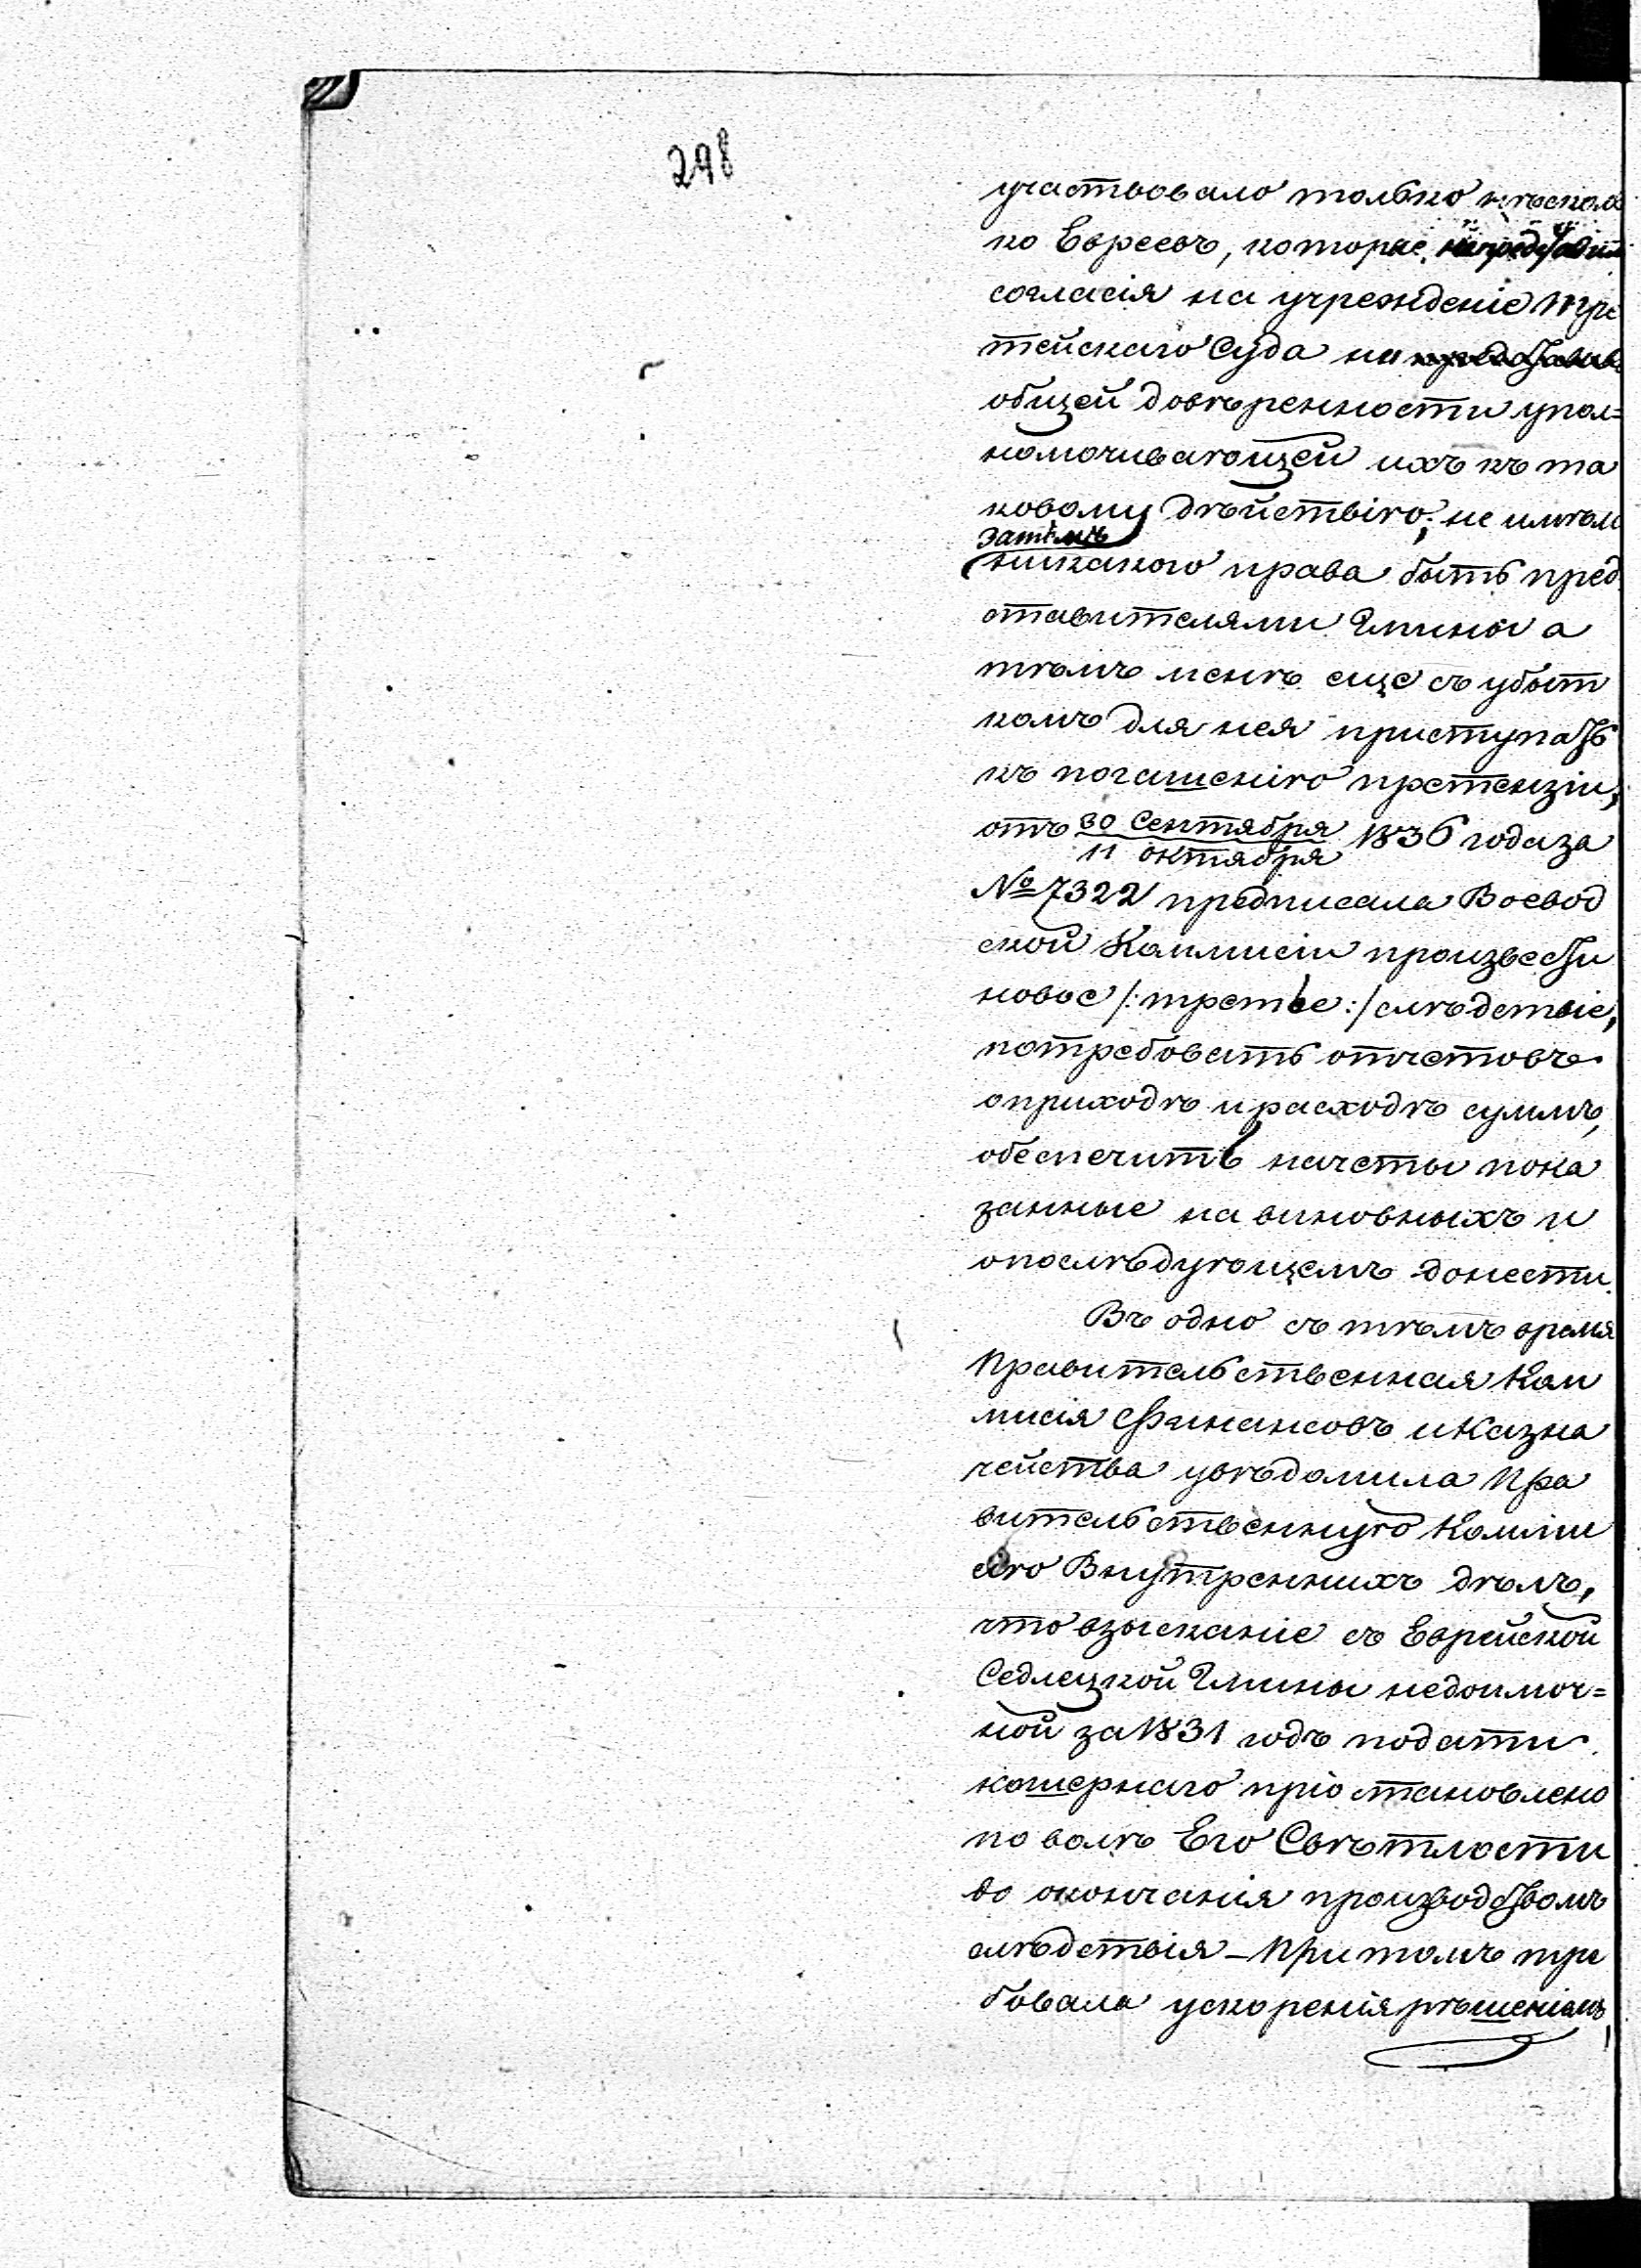 298
участвовало только нѣсколь
ко Евреевъ, которые, не представивъ
согласія на учрежденіе Тре
тейскаго Суда ни
общей довѣренности упол=
номочивающей ихъ къ та
ковому дѣйствію, не имѣли
затѣмъ
никакого права быть пред
ставителями Гмины а
тѣмъ менѣ еще съ убыт
комъ для нея приступать
къ погашенію претензіи,
отъ 30 Сентября / 11 Октября 1836 года за
№ 7322 предписала Воевод
ской Коммисіи произвести
новое /:третье:/ слѣдствіе,
потребовать отчетовъ
о приходѣ и расходѣ суммъ,
обеспечить начеты пока
занные на виновныхъ и
о послѣдующемъ донести.
Въ одно съ тѣмъ время
Правительственная Ком
мисія Финансовъ и Казна
чейства увѣдомила Пра
вительственную Комми
сію Внутреннихъ дѣлъ,
что взысканіе съ Еврейской
Седлецкой Гмины недоимоч=
ной за 1831 годъ подати
кошернаго пріостановлено
по волѣ Его Свѣтлости
до окончанія производствомъ
слѣдствія – При томъ тре
бовала ускоренія рѣшеніемъ,